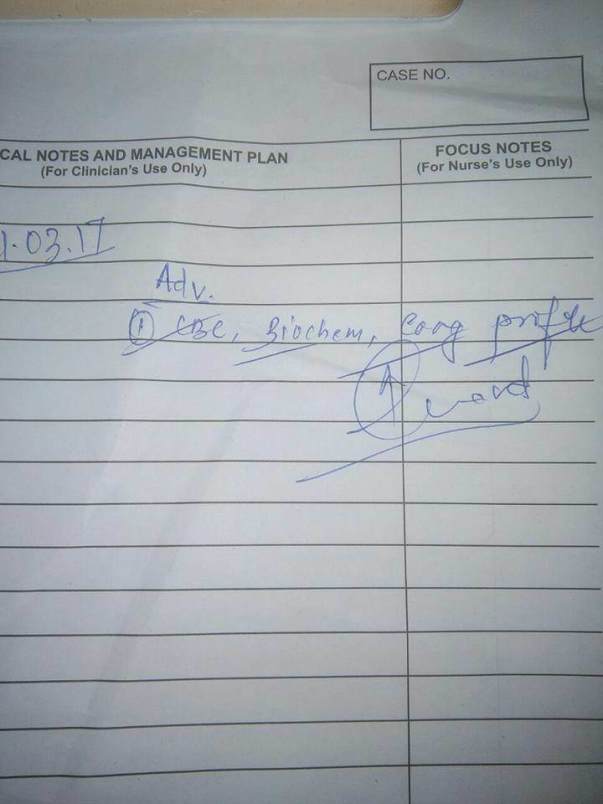 CASE NO.
CAL NOTES AND MANAGEMENT PLAN
(For Clinician's Use Only)
FOCUS NOTES
(For Nurse's Use Only)
1.03.17
Adv.
① CBC, Biochem, Coag profile
↑